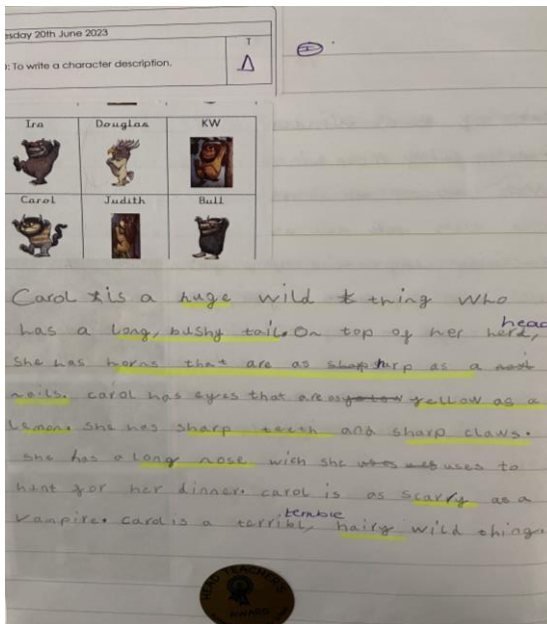 esday 20th June 2023
: To write a character description.
T
Ira Douglas KW
Carol Judith Bull
Carol is a huge wild thing who
has a long, bushy tail. On top of her herd, head
She has horns that are as sharp as a
nails. carol has eyes that are as yellow as a
Lemon. She has sharp teeth and sharp claws.
She has a long nose wich she uses to
hunt for her dinner. carol is as scarry as a
vampire. carol is a terribl, terrible hairy wild thing.
HEAD TEACHER'S
AWARD